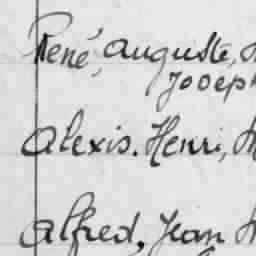 René, Auguste,
Joseph
Alexis. Henri,
Alfred, Jean